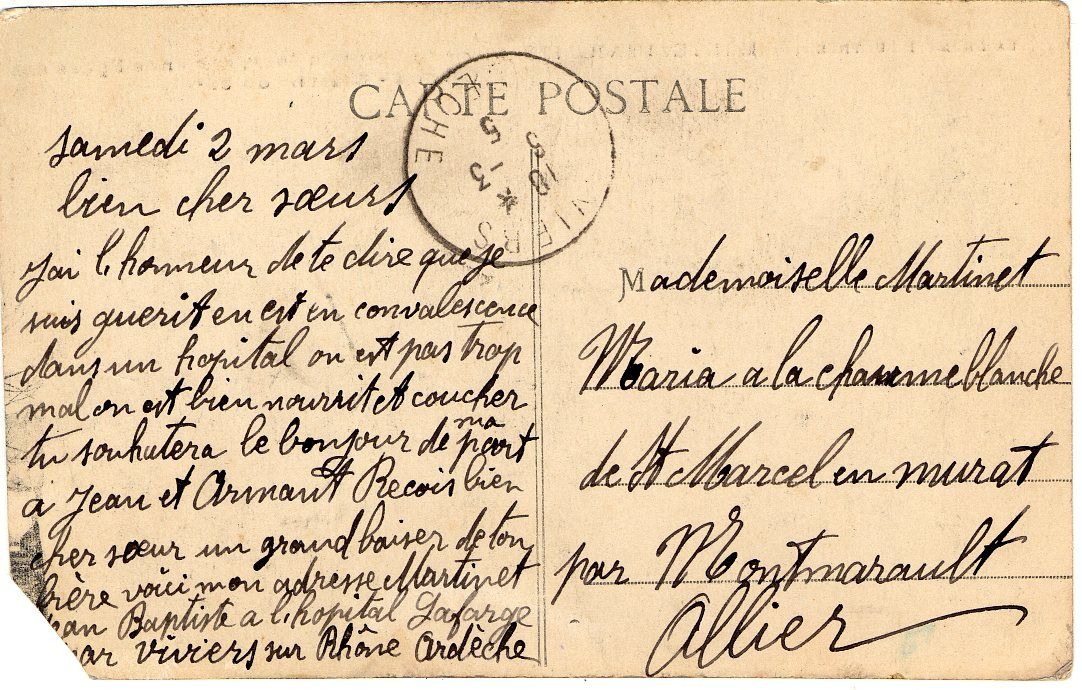 CARTE POSTALE
VIVIERS * ARDÈCHE
5 13
3 18
samedi 2 mars
bien cher sœurs
J'ai l'honneur de te dire que je
suis guerit en est en convalescence
dans un hopital on est pas trop
mal on est bien nourrit et coucher
tu souhutera le bonjour de ma part
à Jean et Armant Recois bien
cher sœur un grand baiser de ton
frère voici mon adresse Martinet
Jean Baptiste a l'hopital Lafarge
par Viviers sur Rhône Ardèche
Mademoiselle Martinet
Maria a la chaume blanche
de St Marcel en murat
par Montmarault
Allier